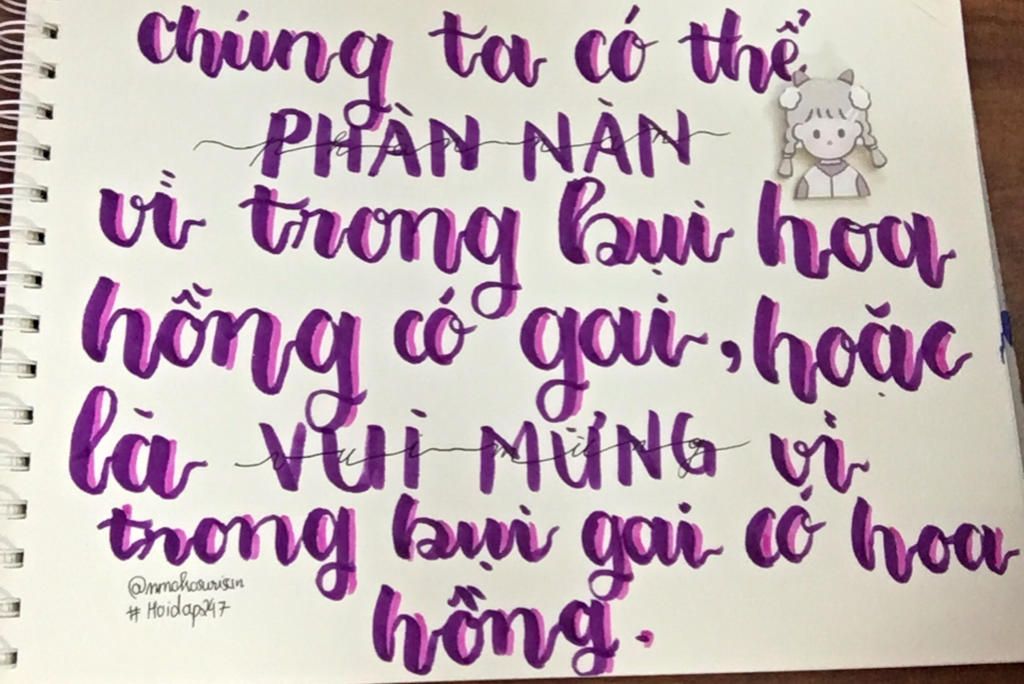 chúng ta có thể
PHÀN NÀN
vì trong bụi hoa
hồng có gai, hoặc
là VUI MỪNG vì
trong bụi gai có hoa
hồng.
#Hoidap247